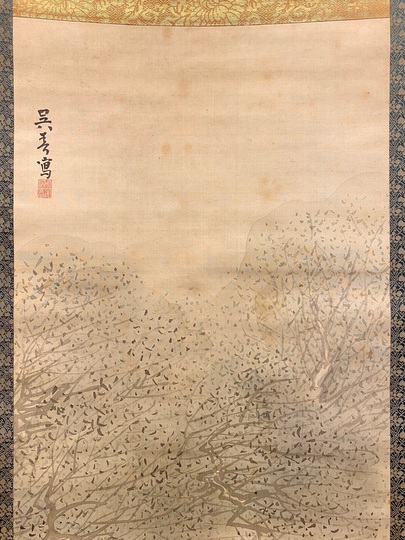 呉春寫